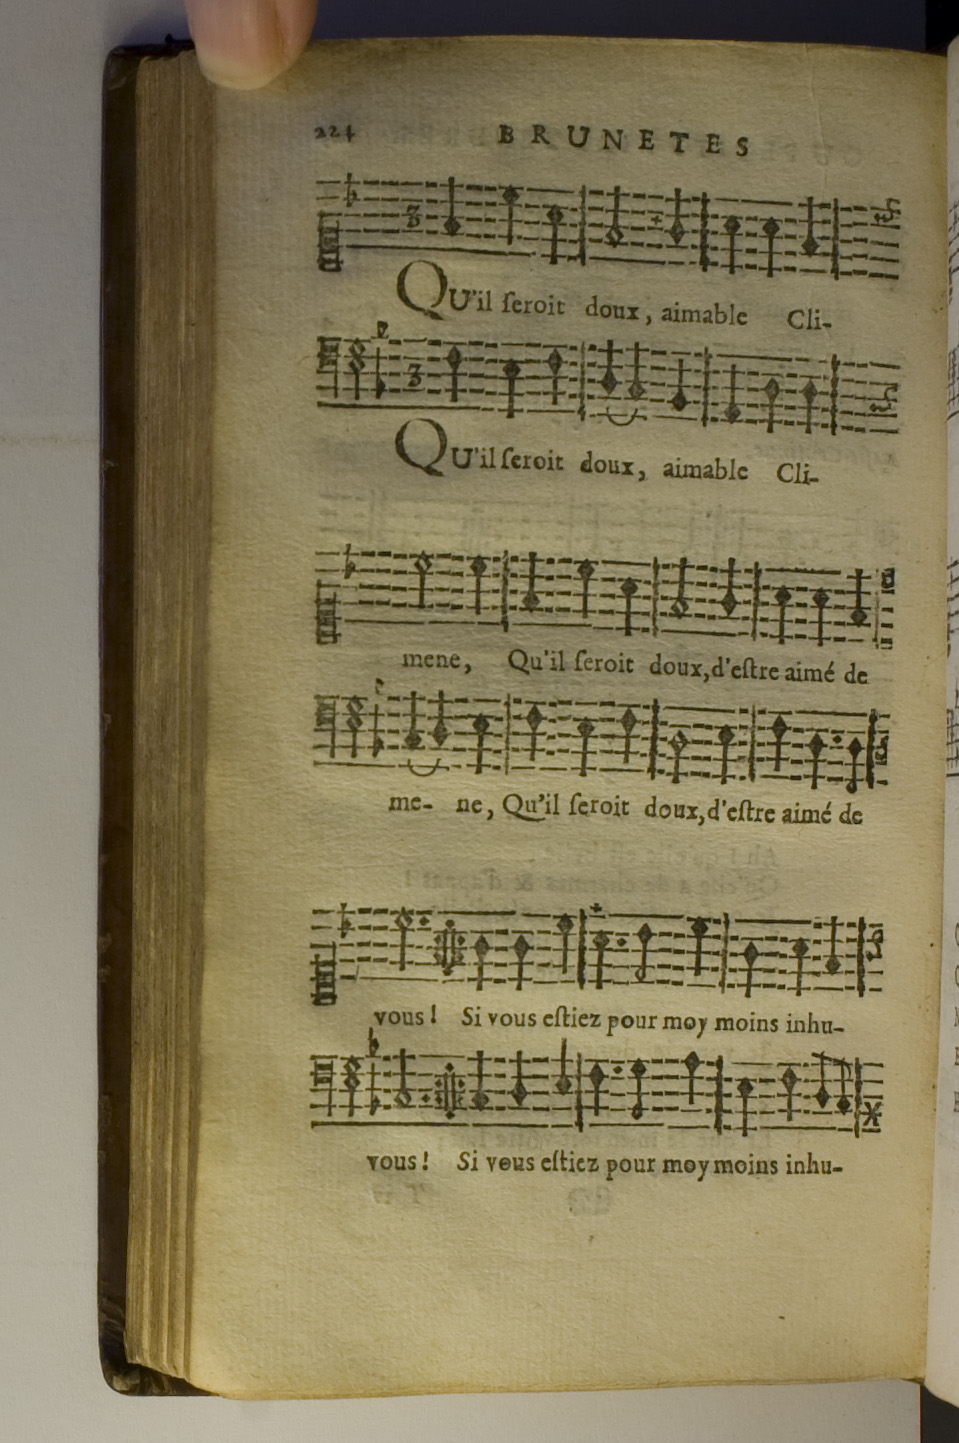 224 BRUNETES
QU'il ſeroit doux, aimable Cli-
QU'il ſeroit doux, aimable Cli-
mene, Qu'il ſeroit doux, d'eſtre aimé de
me- ne, Qu'il ſeroit doux, d'eſtre aimé de
vous! Si vous eſtiez pour moy moins inhu-
vous! Si vous eſtiez pour moy moins inhu-